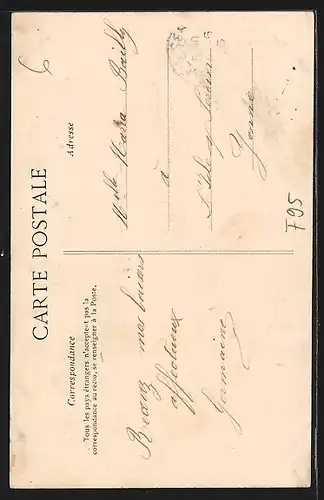 CARTE POSTALE
Correspondance
Tous les pays étrangers n'acceptent pas la
correspondance au recto, se renseigner à la Poste.
Adresse
Recevez mes baisers
affectueux
Germaine
Melle Maria Bailly
à
L'Isle s/ Serein
Yonne
795